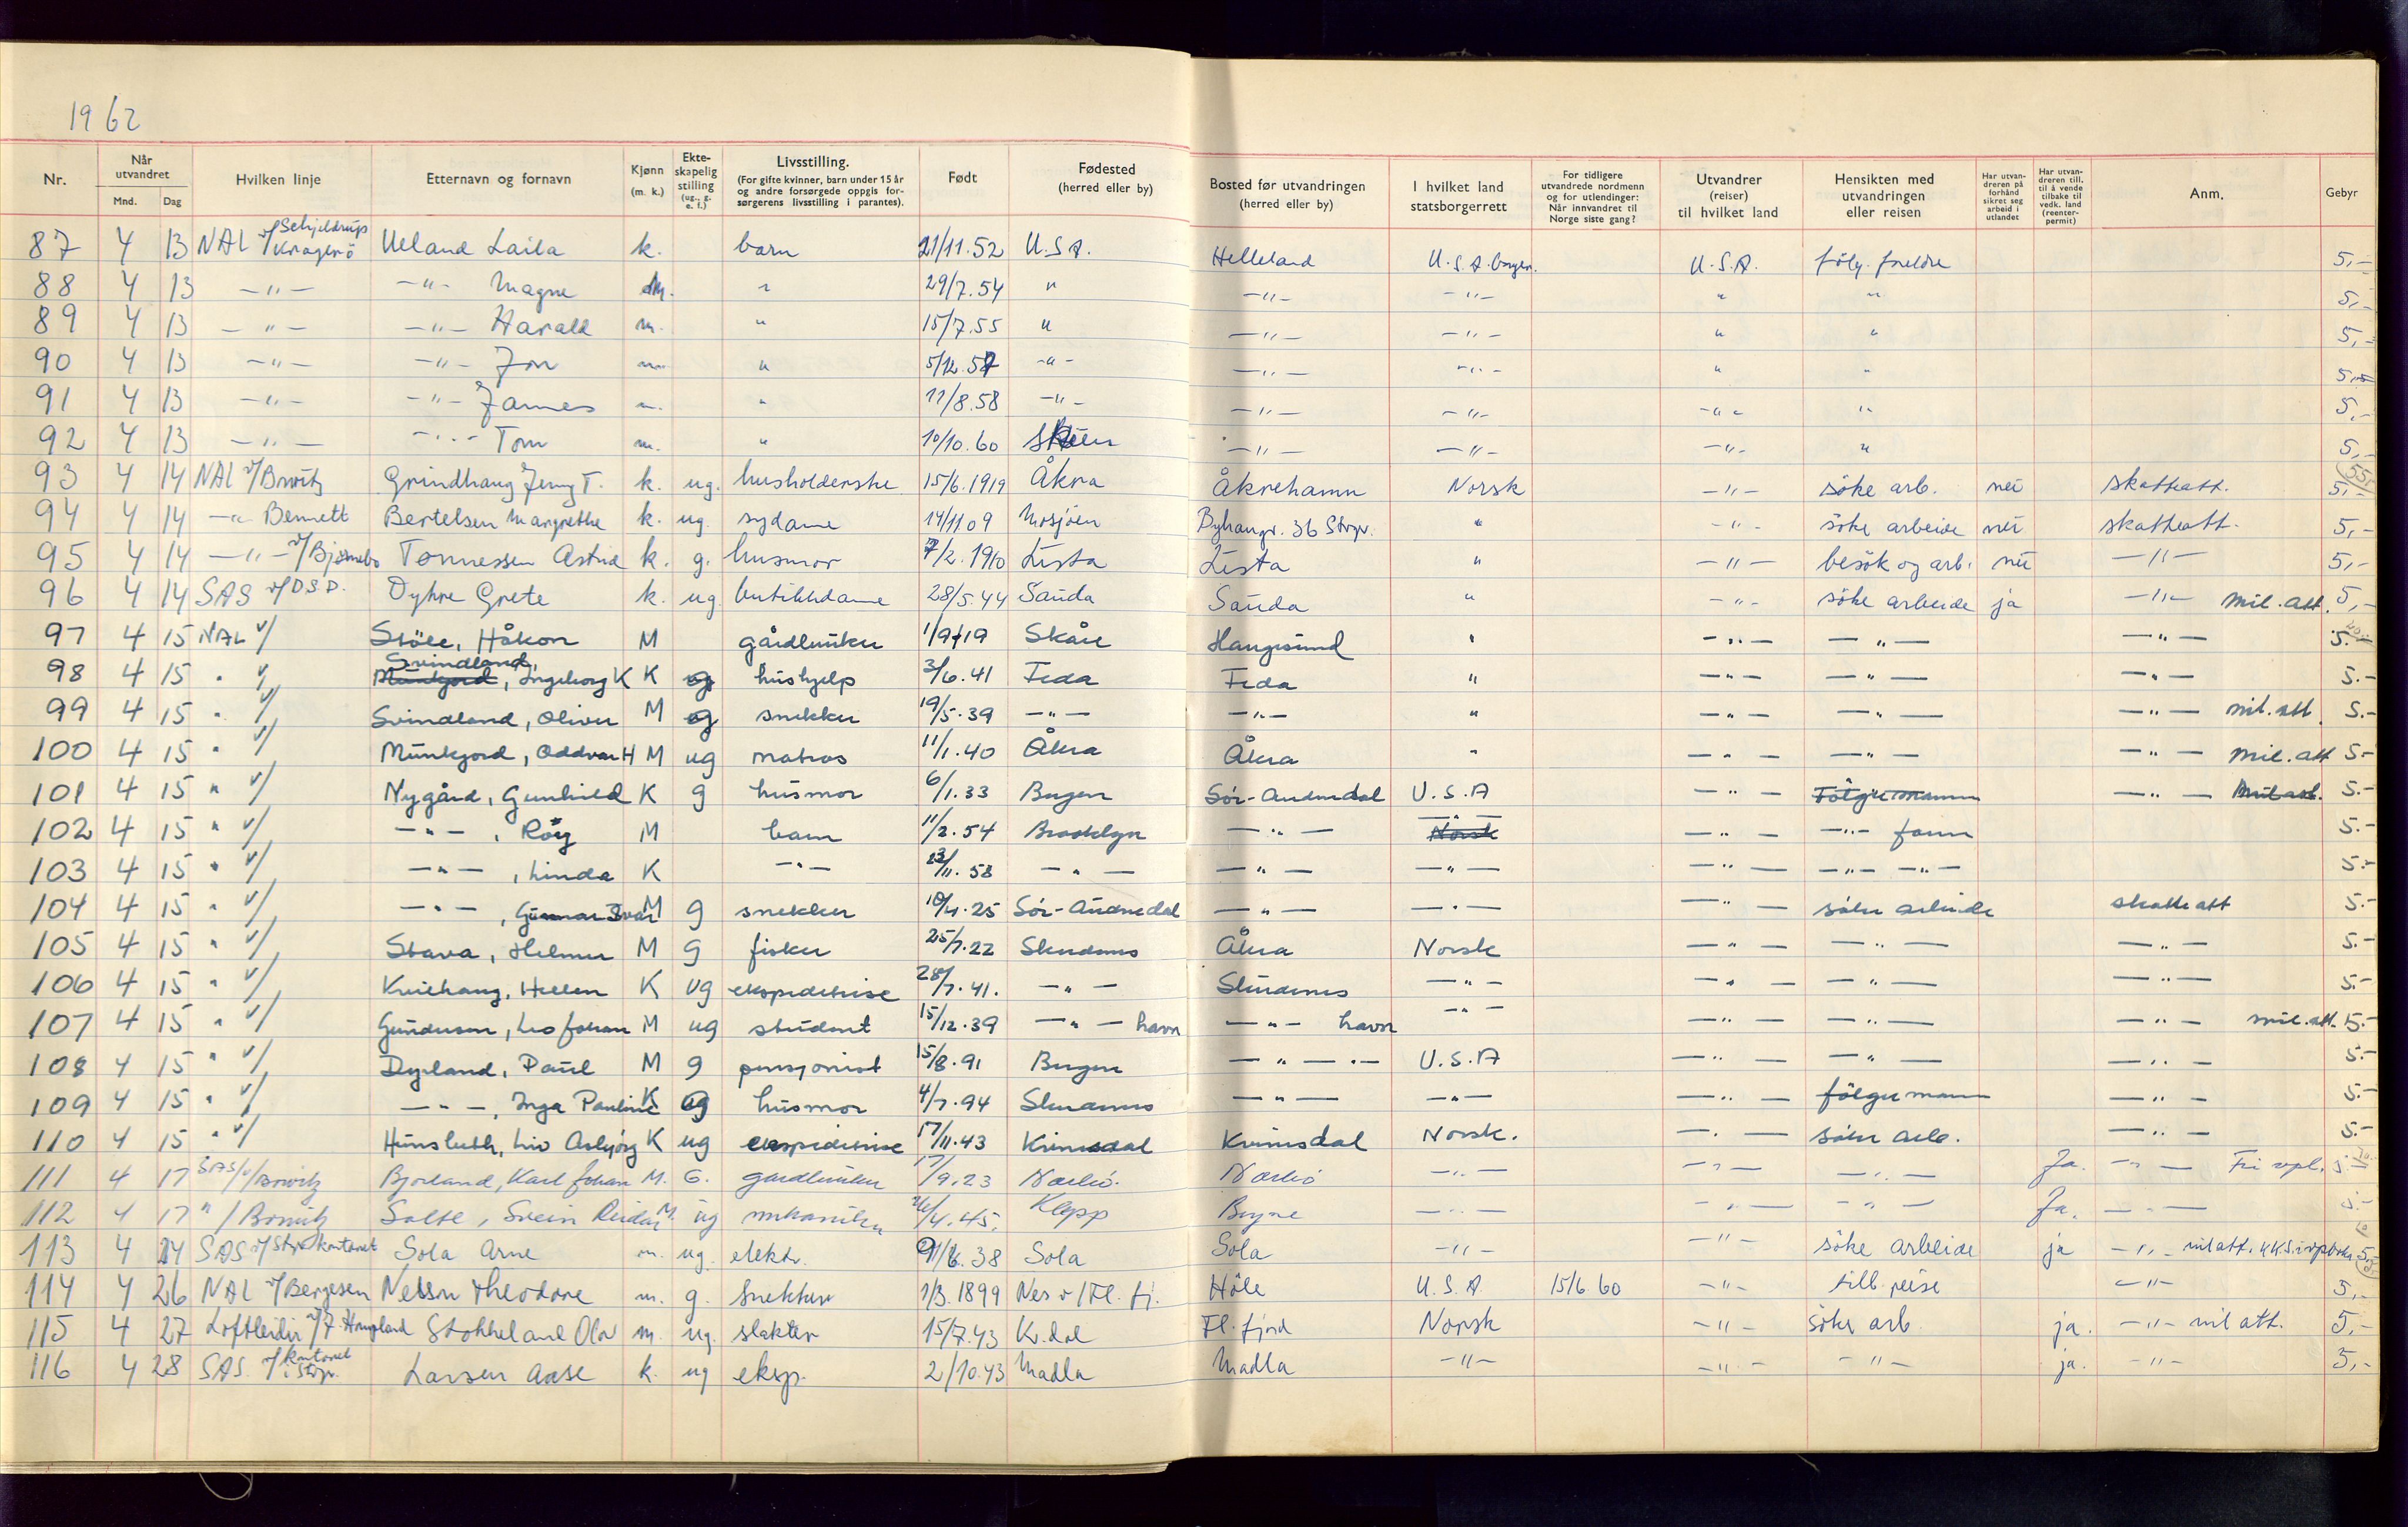 1962
Nr. Når utvandret Mnd. Dag Hvilken linje Etternavn og fornavn Kjønn (m. k.) Ekteskapelig stilling (ug., g. e. f.) Livsstilling. (For gifte kvinner, barn under 15 år og andre forsørgede oppgis forsørgerens livsstilling i parantes). Født Fødested (herred eller by) Bosted før utvandringen (herred eller by) I hvilket land statsborgerrett For tidligere utvandrede nordmenn og for utlendinger: Når innvandret til Norge siste gang? Utvandrer (reiser) til hvilket land Hensikten med utvandringen eller reisen Har utvandreren på forhånd sikret seg arbeid i utlandet Har utvandreren till. til å vende tilbake til vedk. land (reenterpermit) Anm. Gebyr
87 4 13 NAL v/ Schjeldrup Kragerö Ueland Laila k. barn 21/11.52 U.S.A. Helleland U.S.A. borger. U.S.A. følg. foreldre 5,-
88 4 13 -"- -"- Magne m. " 29/7.54 " -"- -"- " " 5,-
89 4 13 -"- -"- Harald m. " 15/7.55 " -"- -"- " " 5,-
90 4 13 -"- -"- Jon m. " 5/12.57 -"- -"- -"- " " 5,-
91 4 13 -"- -"- James m. " 11/8.58 -"- -"- -"- -"- " 5,-
92 4 13 -"- -"- Tom m. " 10/10.60 -"- -"- -"- " 5,-
93 4 14 NAL v/ Grindhaug Jenny T. k. ug. husholderske 15/6.1919 Åkra Åkrehamn Norsk -"- söke arb. nei skatteatt. 5,-
94 4 14 -"- Bennett Bertelsen Margrethe k. ug. sydame 14/11 09 Mosjöen Byhaugv. 36 Stvgr. " -"- söke arbeide nei skatteatt. 5,-
95 4 14 -"- v/Bjørnebo Tønnessen Astrid k. g. husmor 7/2.1910 Lista Lista " -"- besök og arb. nei -"- 5,-
96 4 14 SAS v/D.S.D. Dyhre Grete k. ug. butikkdame 28/5.44 Sauda Sauda " -"- söke arbeide ja -"- mil.att. 5,-
97 4 15 NAL v/ Stöle, Håkon M gårdbruker 1/9 19 Skåre Haugesund " -"- -"- -"- 5.-
98 4 15 " v/ Svindland, Ingeborg K K ug hushjelp 3/6.41 Feda Feda " -"- -"- -"- 5.-
99 4 15 " v/ Svindland, Oliver M ug snekker 19/5.39 -"- -"- " -"- -"- -"- mil.att. 5.-
100 4 15 " v/ Munkjord, Oddvar H M ug matros 11/1.40 Åkra Åkra " -"- -"- -"- mil.att 5.-
101 4 15 " v/ Nygård, Gunhild K g husmor 6/1.33 Bergen Sör-Audnedal U.S.A -"- Fölger mann -"- Mil.att. 5.-
102 4 15 " v/ -"-, Roy M barn 11/2.54 Brooklyn -"- -"- Norsk -"- -"- 5.-
103 4 15 " v/ -"-, Linda K -"- 23/11.58 -"- -"- -"- -"- -"- -"- 5.-
104 4 15 " v/ -"-, Gunnar Ivar M g snekker 10/4.25 Sör-Audnedal -"- -"- -"- söker arbeide skatte att 5.-
105 4 15 " v/ Stava, Helmer M g fisker 25/7.22 Skudenes Åkra Norsk -"- -"- -"- 5.-
106 4 15 " v/ Kvilhaug, Hellen K ug ekspeditrise 28/7.41. -"- Skudenes -"- -"- -"- -"- 5.-
107 4 15 " v/ Gundersen, Leo Johan M ug student 15/12.39 -"- havn -"- havn -"- -"- -"- -"- mil.att. 5.-
108 4 15 " v/ Dyrland, Paul M g pensjonist 15/8.91 Bergen -"- -"- U.S.A -"- -"- -"- 5.-
109 4 15 " v/ -"-, Inga Pauline K g husmor 4/7.94 Skudenes -"- -"- -"- fölger mann -"- 5.-
110 4 15 " v/ Hunsbeth, Liv Asbjörg K ug ekspeditrise 17/11.43 Kvinesdal Kvinesdal Norsk. -"- söker arb. -"- 5.-
111 4 17 SAS/v/ Bjorland, Karl Johan M. G. gardbruker 17/9.23 Nærbö. Nærbö -"- -"- -"- Ja. -"- Fri vpl. 5.-
112 4 17 " / Salte, Svein Reidar M. ug mekaniker 26/4.45. Klepp Bryne -"- -"- -"- Ja. -"- 5.-
113 4 24 SAS v/Stvgr.kontoret Sola Arne m. ug. elektr. 38 Sola Sola -"- -"- söke arbeide ja -"- mil att. 5,-
114 4 26 NAL v/Bergesen Nelson Theodore m. g. Snekker 1/3.1899 Nes v/Fl.fj. Höle U.S.A. 15/6 60 -"- tilb.reise -"- 5,-
115 4 27 Loftleidir v/J. Haugland Stokkeland Olav m. ug. slakter 15/7.43 Kv.dal Fl.fjord Norsk -"- söke arb. ja. -"- mil att. 5,-
116 4 28 SAS v/kontoret i Stvgr. Larsen Aase k. ug eksp. 2/10.43 Madla Madla -"- -"- -"- ja. -"- 5,-